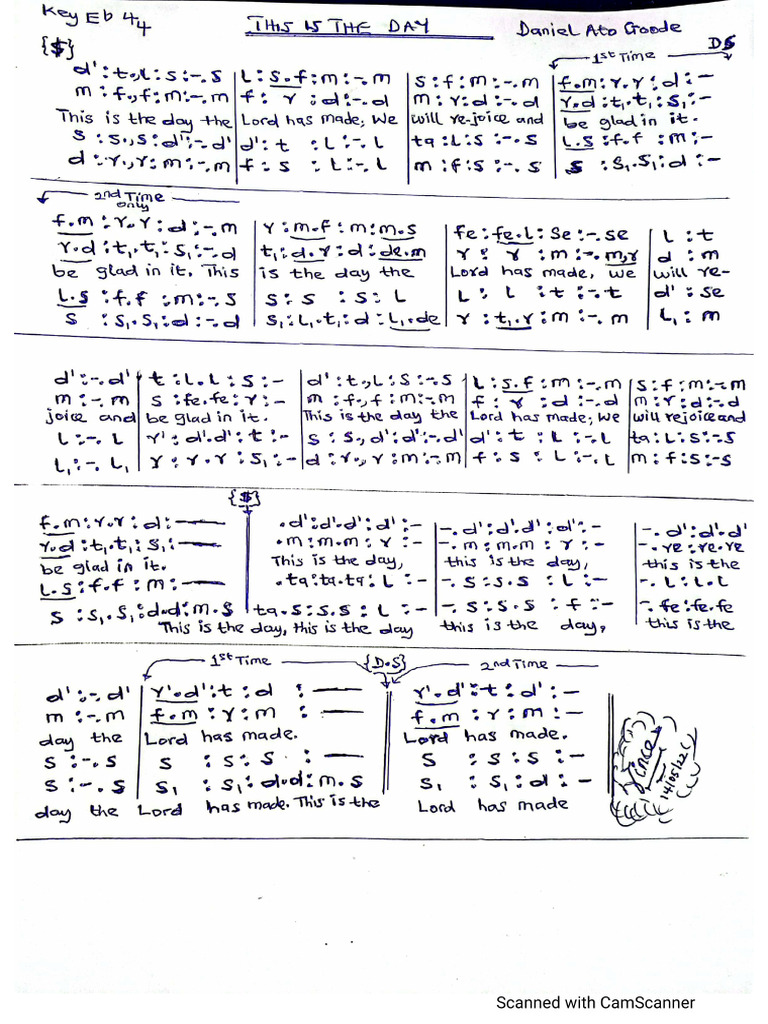 Key Eb 4/4 THIS IS THE DAY Daniel Ato Goode
{$} 1st Time DS
d' : t.,L : s : -. s | L : s.f : m : -. m | s : f : m : -. m | f.m : r.r : d : -
m : f.,f : m : -. m | f : r : d : -. d | m : r : d : -. d | r.d : t₁.t₁ : s₁ : -
This is the day the | Lord has made; We | will re-joice and | be glad in it.
s : s.,s : d' : -. d' | d' : t : L : -. L | ta : L : s : -. s | L.s : f.f : m : -
d : r.,r : m : -. m | f : s : L : -. L | m : f : s : -. s | s : s₁.s₁ : d : -
2nd Time only
f.m : r.r : d : -. m | r : m.f : m : m.s | fe : fe.L : se : -. se | L : t
r.d : t₁.t₁ : s₁ : -. d | t₁ : d.r : d : de.m | r : r : m : -. m,r | d : m
be glad in it. This | is the day the | Lord has made, we | will re-
L.s : f.f : m : -. s | s : s : s : L | L : L : t : -. t | d' : se
s : s₁.s₁ : d : -. d | s₁ : L₁.t₁ : d : L₁.de | r : t₁.r : m : -. m | L₁ : m
d' : -. d' | t : L.L : s : - | d' : t.,L : s : -. s | L : s.f : m : -. m | s : f : m : -. m
m : -. m | s : fe.fe : r : - | m : f.,f : m : -. m | f : r : d : -. d | m : r : d : -. d
joice and | be glad in it. | This is the day the | Lord has made; We | will rejoice and
L : -. L | r' : d'.d' : t : - | s : s., d' : d' : -. d' | d' : t : L : -. L | ta : L : s : -. s
L₁ : -. L₁ | r : r.r : s₁ : - | d : r., r : m : -. m | f : s : L : -. L | m : f : s : -. s
{$}
f.m : r.r : d : — | . d' : d'.d' : d' : - | -. d' : d'.d' : d' : - | -. d' : d'.d'
r.d : t₁.t₁ : s₁ : — | . m : m.m : r : - | -. m : m.m : r : - | -. re : re.re
be glad in it. | This is the day, | this is the day, | this is the
L.s : f.f : m : — | . ta : ta.ta : L : - | -. s : s.s : L : - | -. L : L.L
s : s₁.s₁ : d.d : m.s | ta.s : s.s : L : - | -. s : s.s : f : - | -. fe : fe.fe
This is the day, this is the day this is the day, this is the
1st Time {D.S} 2nd Time
d' : -. d' | r'.d' : t : d : — | r'.d' : t : d' : -
m : -. m | f.m : r : m : — | f.m : r : m : -
day the | Lord has made. | Lord has made.
s : -. s | s : s : s : — | s : s : s : -
s : -. s | s₁ : s₁ : d.d : m.s | s₁ : s₁ : d : -
day the Lord has made. This is the Lord has made
Vince
14/05/22
Scanned with CamScanner